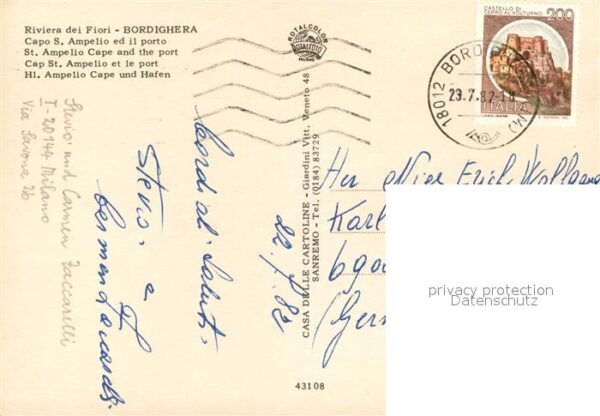 Riviera dei Fiori - BORDIGHERA
Capo S. Ampelio ed il porto
St. Ampelio Cape and the port
Cap St. Ampelio et le port
Hl. Ampelio Cape und Hafen
ROTALCOLOR
ROTALFOTO
MILANO
CASTELLO DI
CERRO AL VOLTURNO
200
ITALIA
18012 BORDIGHERA (IM)
23.7.82-18
Stevio und Carmen Zaccarelli
I-20144 Milano
Via Savona 26
Cordiali Saluti
Stevio e
22.7.82
CASA DELLE CARTOLINE - Giardini Vitt. Veneto 48
SANREMO - Tel. (0184) 83729
43108
Her Erich Wolfgang
Karl
6900
Ger
privacy protection
Datenschutz